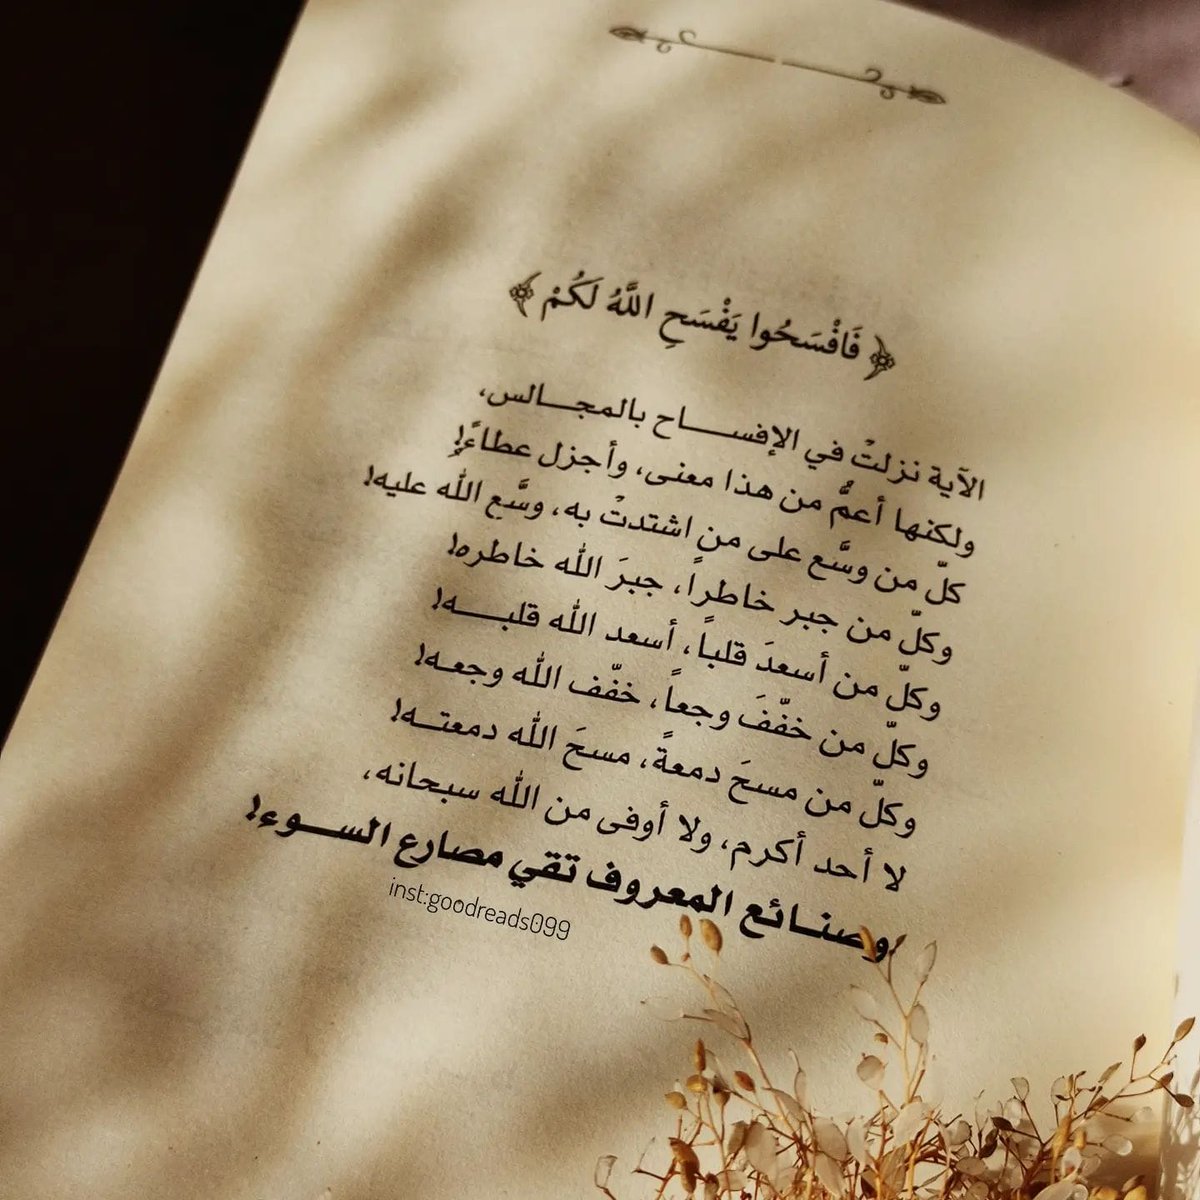 ﴿ فَافْسَحُوا يَفْسَحِ اللَّهُ لَكُمْ ﴾
الآية نزلتْ في الإفســـــاح بالمجـــالس،
ولكنها أعمُّ من هذا معنى، وأجزل عطاءً!
كلّ من وسَّع على من اشتدتْ به، وسَّع الله عليه!
وكلّ من جبر خاطراً، جبرَ الله خاطره!
وكلّ من أسعدَ قلباً، أسعد الله قلبـــــه!
وكلّ من خفّفَ وجعاً، خفّف الله وجعـه!
وكلّ من مسحَ دمعةً، مسحَ الله دمعتـــه!
لا أحد أكرم، ولا أوفى من الله سبحانه،
وصنــائع المعروف تقي مصارع الســـوء!
inst:goodreads099